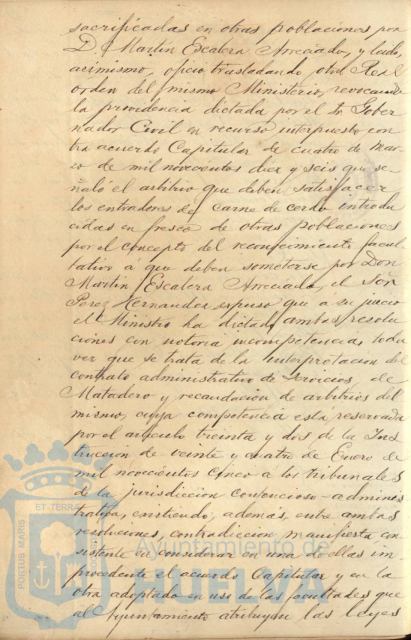 sacrificadas en otras poblaciones por
D. Martin Escalera Arreciado, y leido,
acimismo, oficio trasladando otra Real
orden del mismo Ministerio, revocando
la providencia dictada por el Sr Gober
nador Civil en recurso interpuesto con
tra acuerdo Capitular de cuatro de Mar
zo de mil novecientos diez y seis que se
ñaló el arbitrio que deben satisfacer
los entradores de carne de cerdo introdu
cidas en fresco de otras poblaciones
por el concepto del reconocimiento facul
tativo á que deben someterse por Don
Martin Escalera Arreciado, el Señor
Perez Hernandez expuso que a su juicio
el Ministro ha dictado ambas resolu
ciones con notoria incompetencia toda
vez que se trata de la interpretacion del
contrato administrativo de servicios de
Matadero y recaudación de arbitrios del
mismo, cuya competencia está reservada
por el articulo treinta y dos de la Ins
truccion de veinte y cuatro de Enero de
mil novecientos cinco a los tribunales
de la jurisdiccion contencioso-adminis
trativa, existiendo, además, entre ambas
resoluciones contradiccion manifiesta con
sistente en considerar en una de ellas im
procedente el acuerdo Capitular y en la
otra adoptado en uso de las facultades que
al Ayuntamiento atribuyen las leyes
PORTUS MARIS
ET TERRAE
Ayuntamiento de
HUELVA